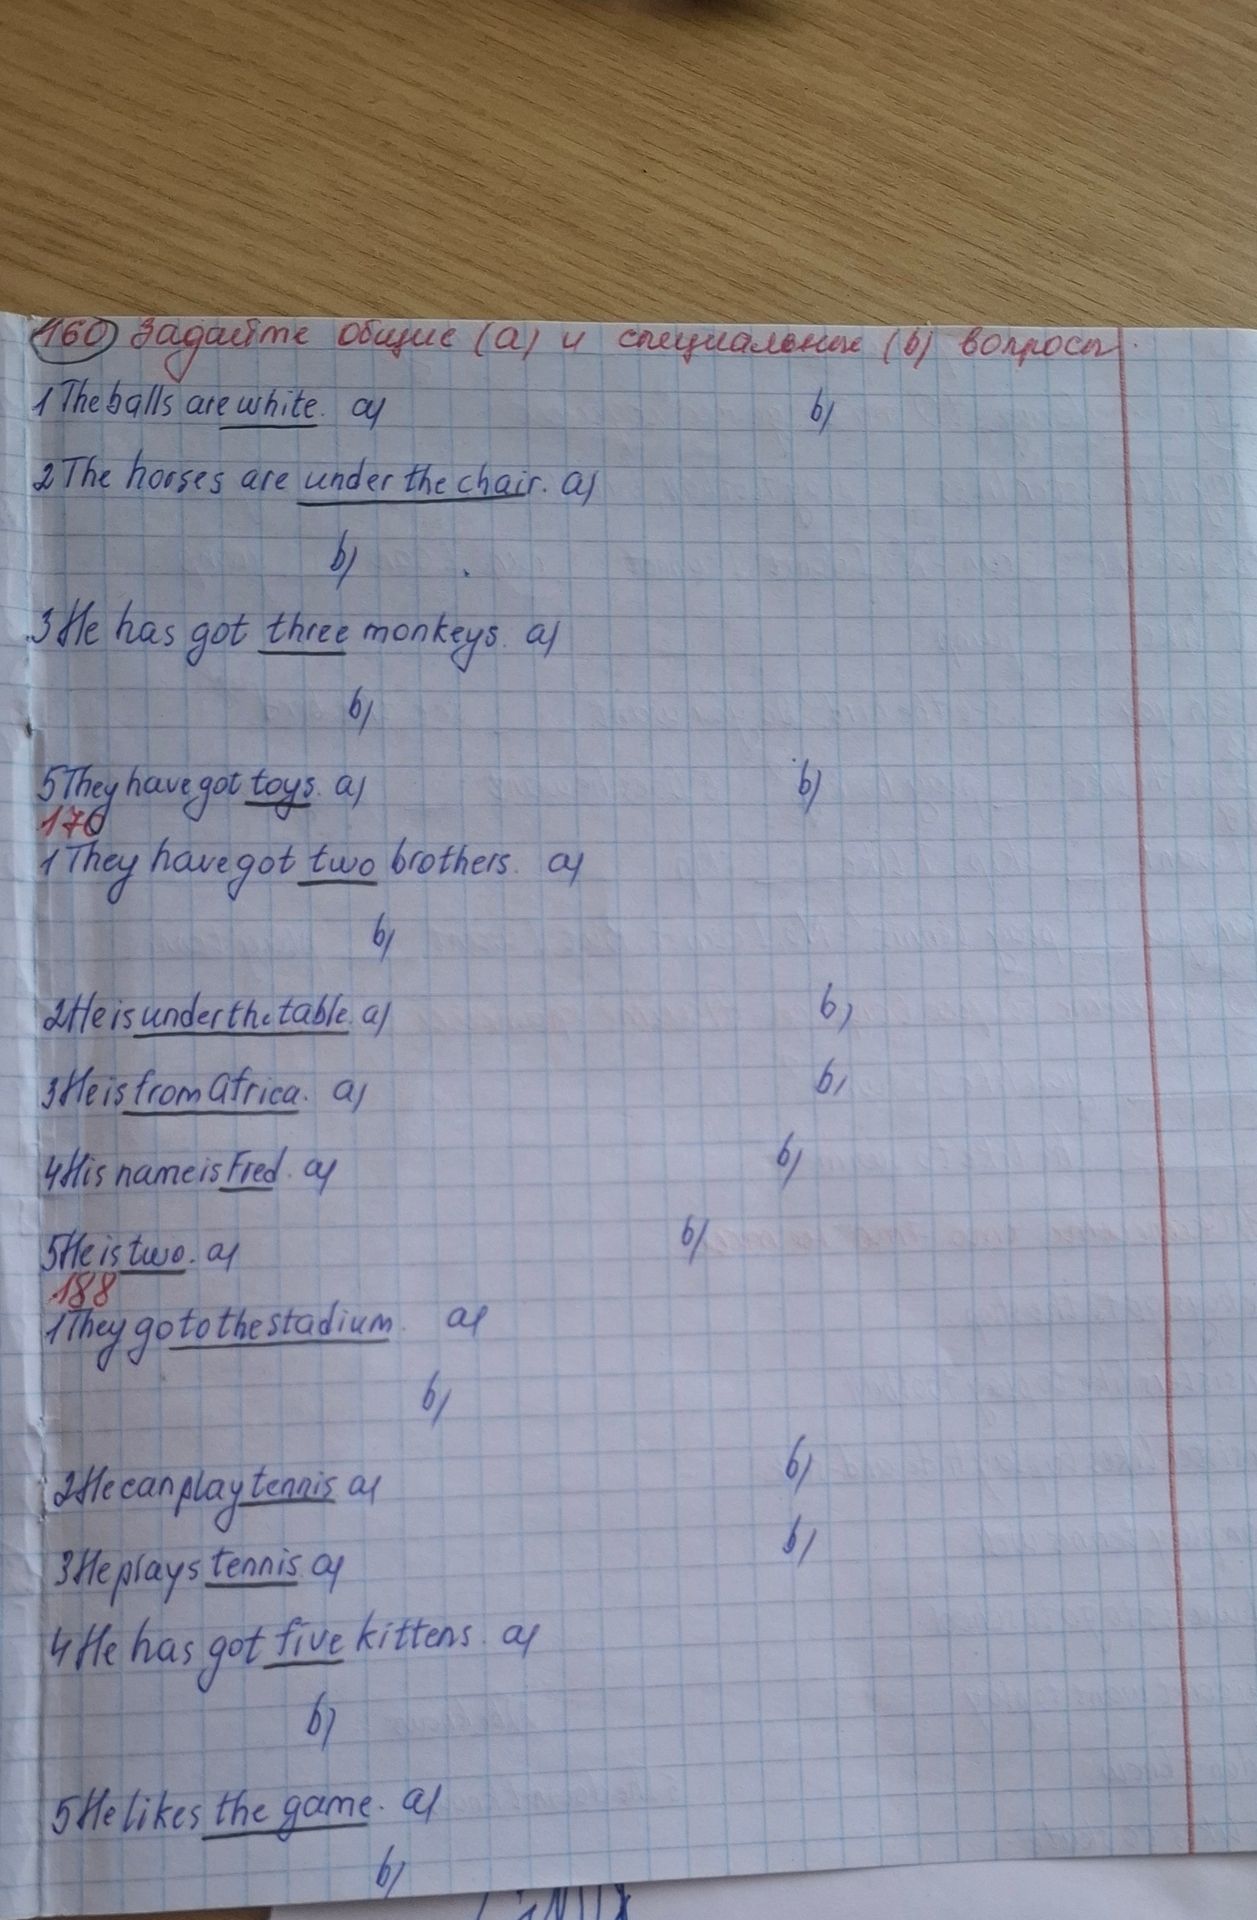 160 Задайте общие (a) и специальные (b) вопросы.
1 The balls are white. a) b)
2 The horses are under the chair. a)
b)
3 He has got three monkeys. a)
b)
5 They have got toys. a) b)
170
1 They have got two brothers. a)
b)
2 He is under the table. a) b)
3 He is from Africa. a) b)
4 His name is Fred. a) b)
5 He is two. a) b)
188
1 They go to the stadium. a)
b)
2 He can play tennis a) b)
3 He plays tennis a) b)
4 He has got five kittens. a)
b)
5 He likes the game. a)
b)